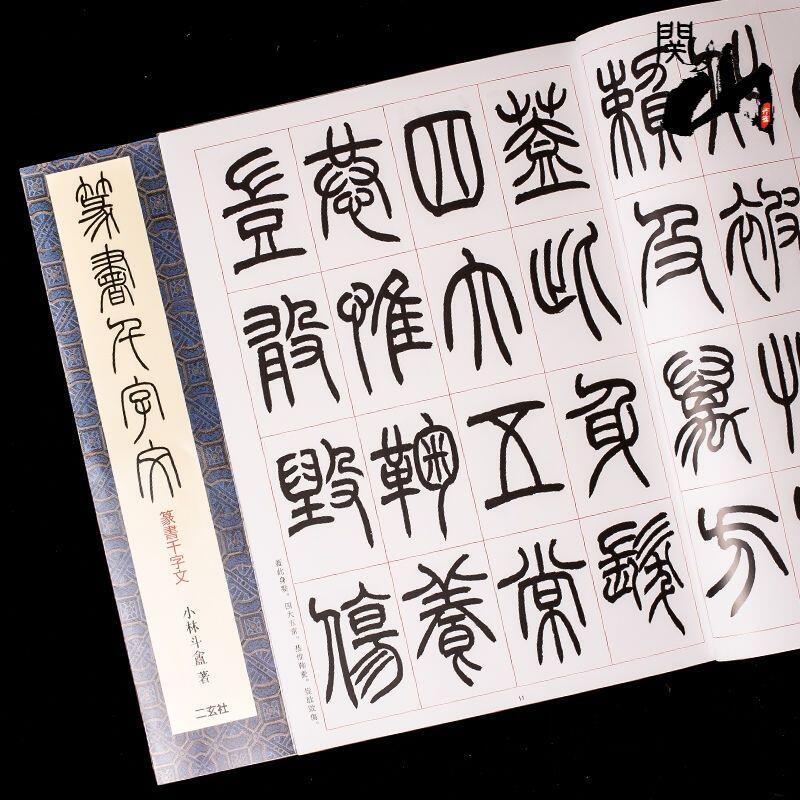 篆書千字文
篆書千字文
小林斗盦 著
二玄社
関山
被
賴及萬方
蓋此身髮
四大五常
恭惟鞠養
豈敢毀傷
蓋此身髮。四大五常。恭惟鞠養。豈敢毀傷。
11